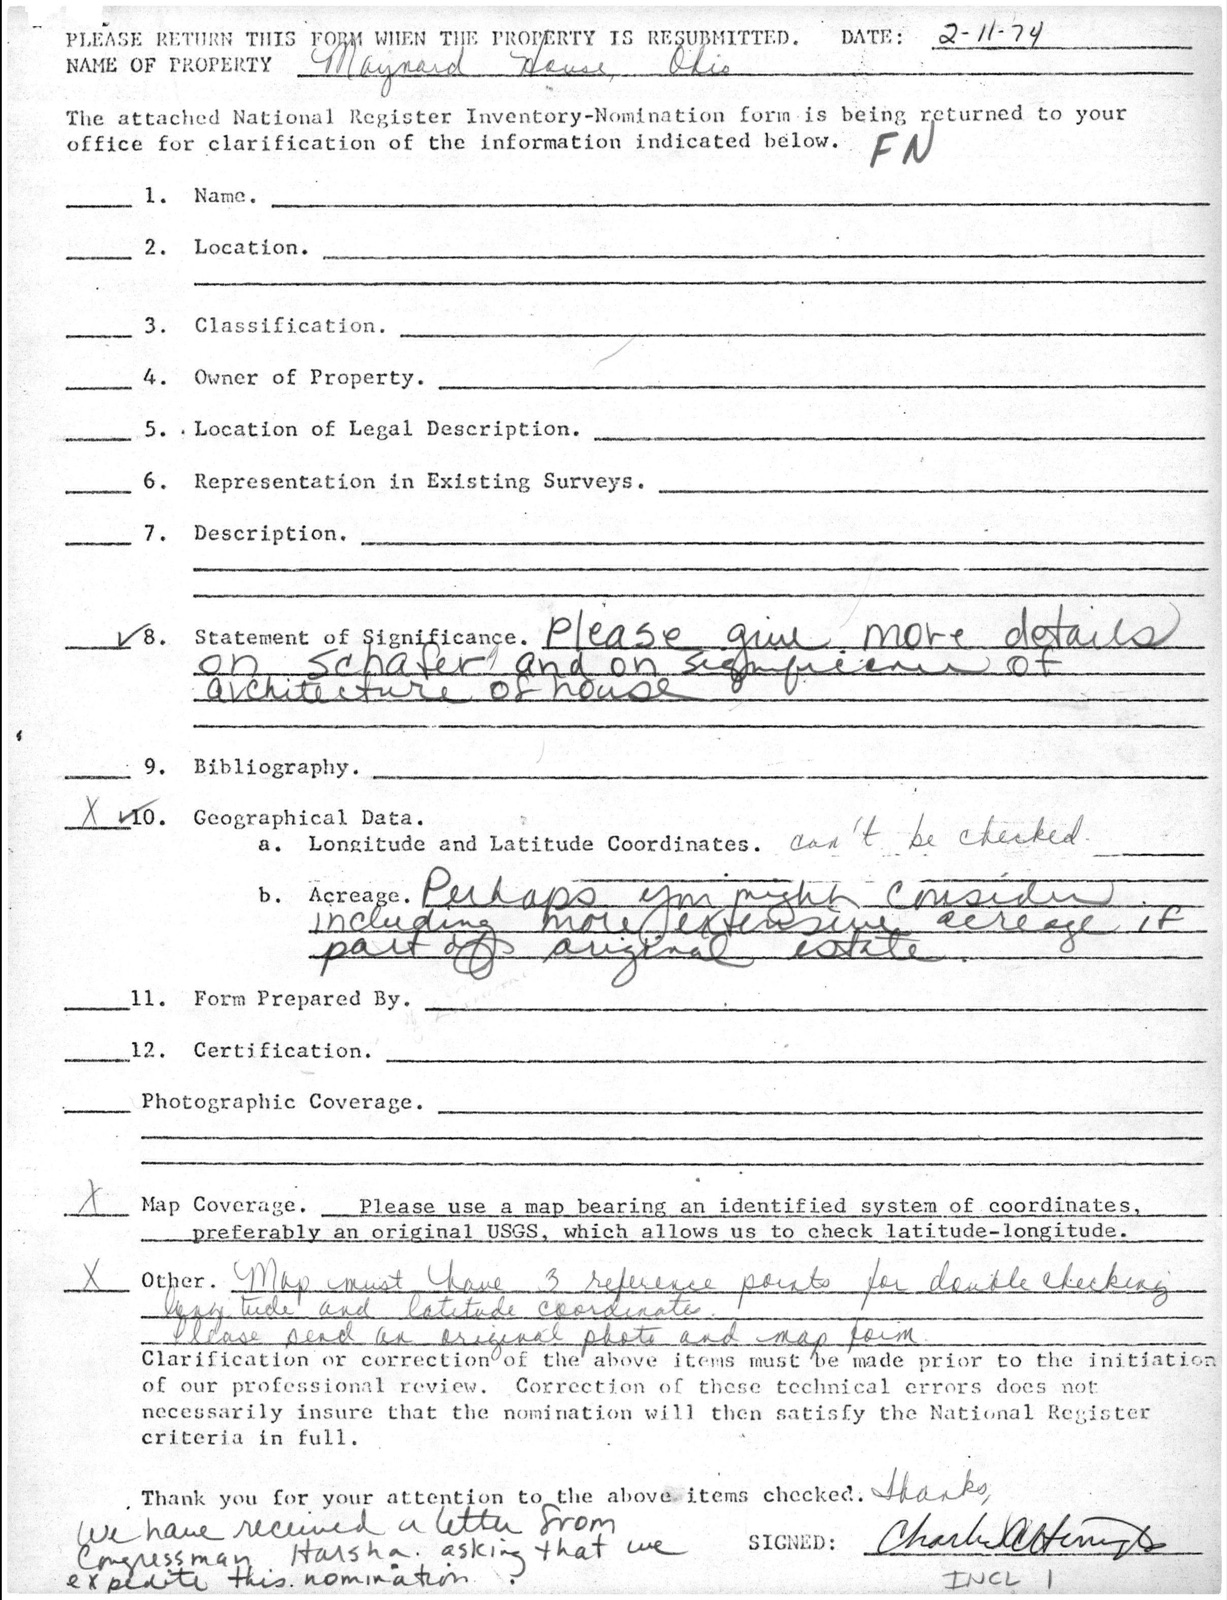 PLEASE RETURN THIS FORM WHEN THE PROPERTY IS RESUBMITTED. DATE: 2-11-74
NAME OF PROPERTY Maynard House, Ohio
The attached National Register Inventory-Nomination form is being returned to your
office for clarification of the information indicated below. FN
1. Name.
2. Location.
3. Classification.
4. Owner of Property.
5. Location of Legal Description.
6. Representation in Existing Surveys.
7. Description.
✓ 8. Statement of Significance. Please give more details
on Schafer and on significance of
architecture of house
9. Bibliography.
X ✓ 10. Geographical Data.
a. Longitude and Latitude Coordinates. can't be checked.
b. Acreage. Perhaps you might consider
including more extensive acreage if
part of original estate.
11. Form Prepared By.
12. Certification.
Photographic Coverage.
X Map Coverage. Please use a map bearing an identified system of coordinates,
preferably an original USGS, which allows us to check latitude-longitude.
X Other. Map must have 3 reference points for double checking
longitude and latitude coordinates.
Please send an original photo and map form
Clarification or correction of the above items must be made prior to the initiation
of our professional review. Correction of these technical errors does not
necessarily insure that the nomination will then satisfy the National Register
criteria in full.
Thank you for your attention to the above items checked. Thanks,
We have received a letter from
Congressman Harsha asking that we
expedite this nomination.
SIGNED: Charles
INCL 1